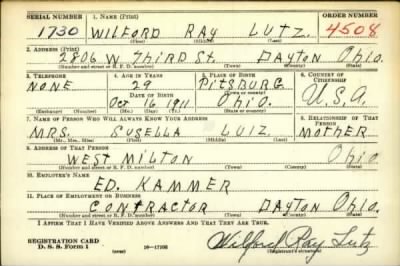 SERIAL NUMBER 1. NAME (Print) ORDER NUMBER
1730 WILFORD RAY LUTZ. 4508
(First) (Middle) (Last)
2. ADDRESS (Print)
2806 W. THIRD ST. DAYTON OHIO.
(Number and street or R. F. D. number) (Town) (County) (State)
3. TELEPHONE 4. AGE IN YEARS 5. PLACE OF BIRTH 6. COUNTRY OF CITIZENSHIP
NONE 29 PITSBURG.
DATE OF BIRTH (Town or county)
OCT 16 1911 OHIO. U.S.A.
(Exchange) (Number) (Mo.) (Day) (Yr.) (State or country)
7. NAME OF PERSON WHO WILL ALWAYS KNOW YOUR ADDRESS 8. RELATIONSHIP OF THAT PERSON
MRS. SUSELLA LUTZ MOTHER
(Mr., Mrs., Miss) (First) (Middle) (Last)
9. ADDRESS OF THAT PERSON
WEST MILTON OHIO.
(Number and street or R. F. D. number) (Town) (County) (State)
10. EMPLOYER'S NAME
ED. KAMMER
11. PLACE OF EMPLOYMENT OR BUSINESS
CONTRACTOR DAYTON OHIO.
(Number and street or R. F. D. number) (Town) (County) (State)
I AFFIRM THAT I HAVE VERIFIED ABOVE ANSWERS AND THAT THEY ARE TRUE.
REGISTRATION CARD
D. S. S. Form 1 (over) 16—17105 Wilford Ray Lutz
(Registrant's signature)